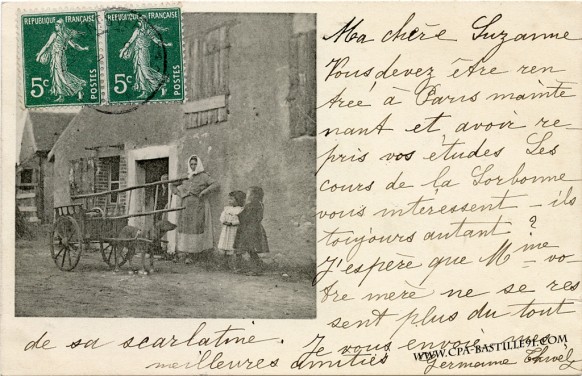 REPUBLIQUE FRANÇAISE
5c POSTES
REPUBLIQUE FRANÇAISE
5c POSTES
Ma chère Suzanne
Vous devez être ren
trée à Paris mainte
nant et avoir re-
pris vos études Les
cours de la Sorbonne
vous intéressent-ils
toujours autant ?
J'espère que Mme vo-
tre mère ne se res
sent plus du tout
de sa scarlatine. Je vous envoie mes
meilleures amitiés Germaine
WWW.CPA-BASTILLE91.COM